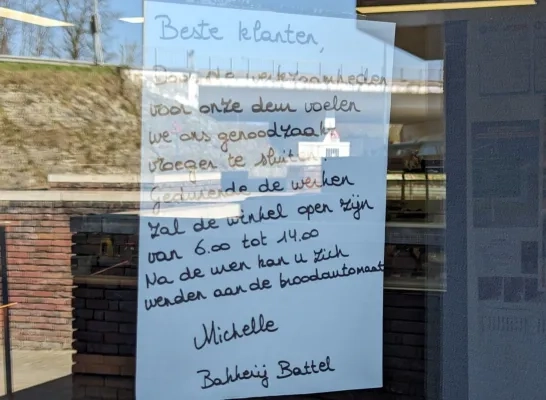 Beste klanten,
Door de werkzaamheden
voor onze deur voelen
we ons genoodzaakt
vroeger te sluiten.
Gedurende de werken
zal de winkel open zijn
van 6.00 tot 14.00
Na de uren kan u zich
wenden aan de broodautomaat
Michelle
Bakkerij Battel